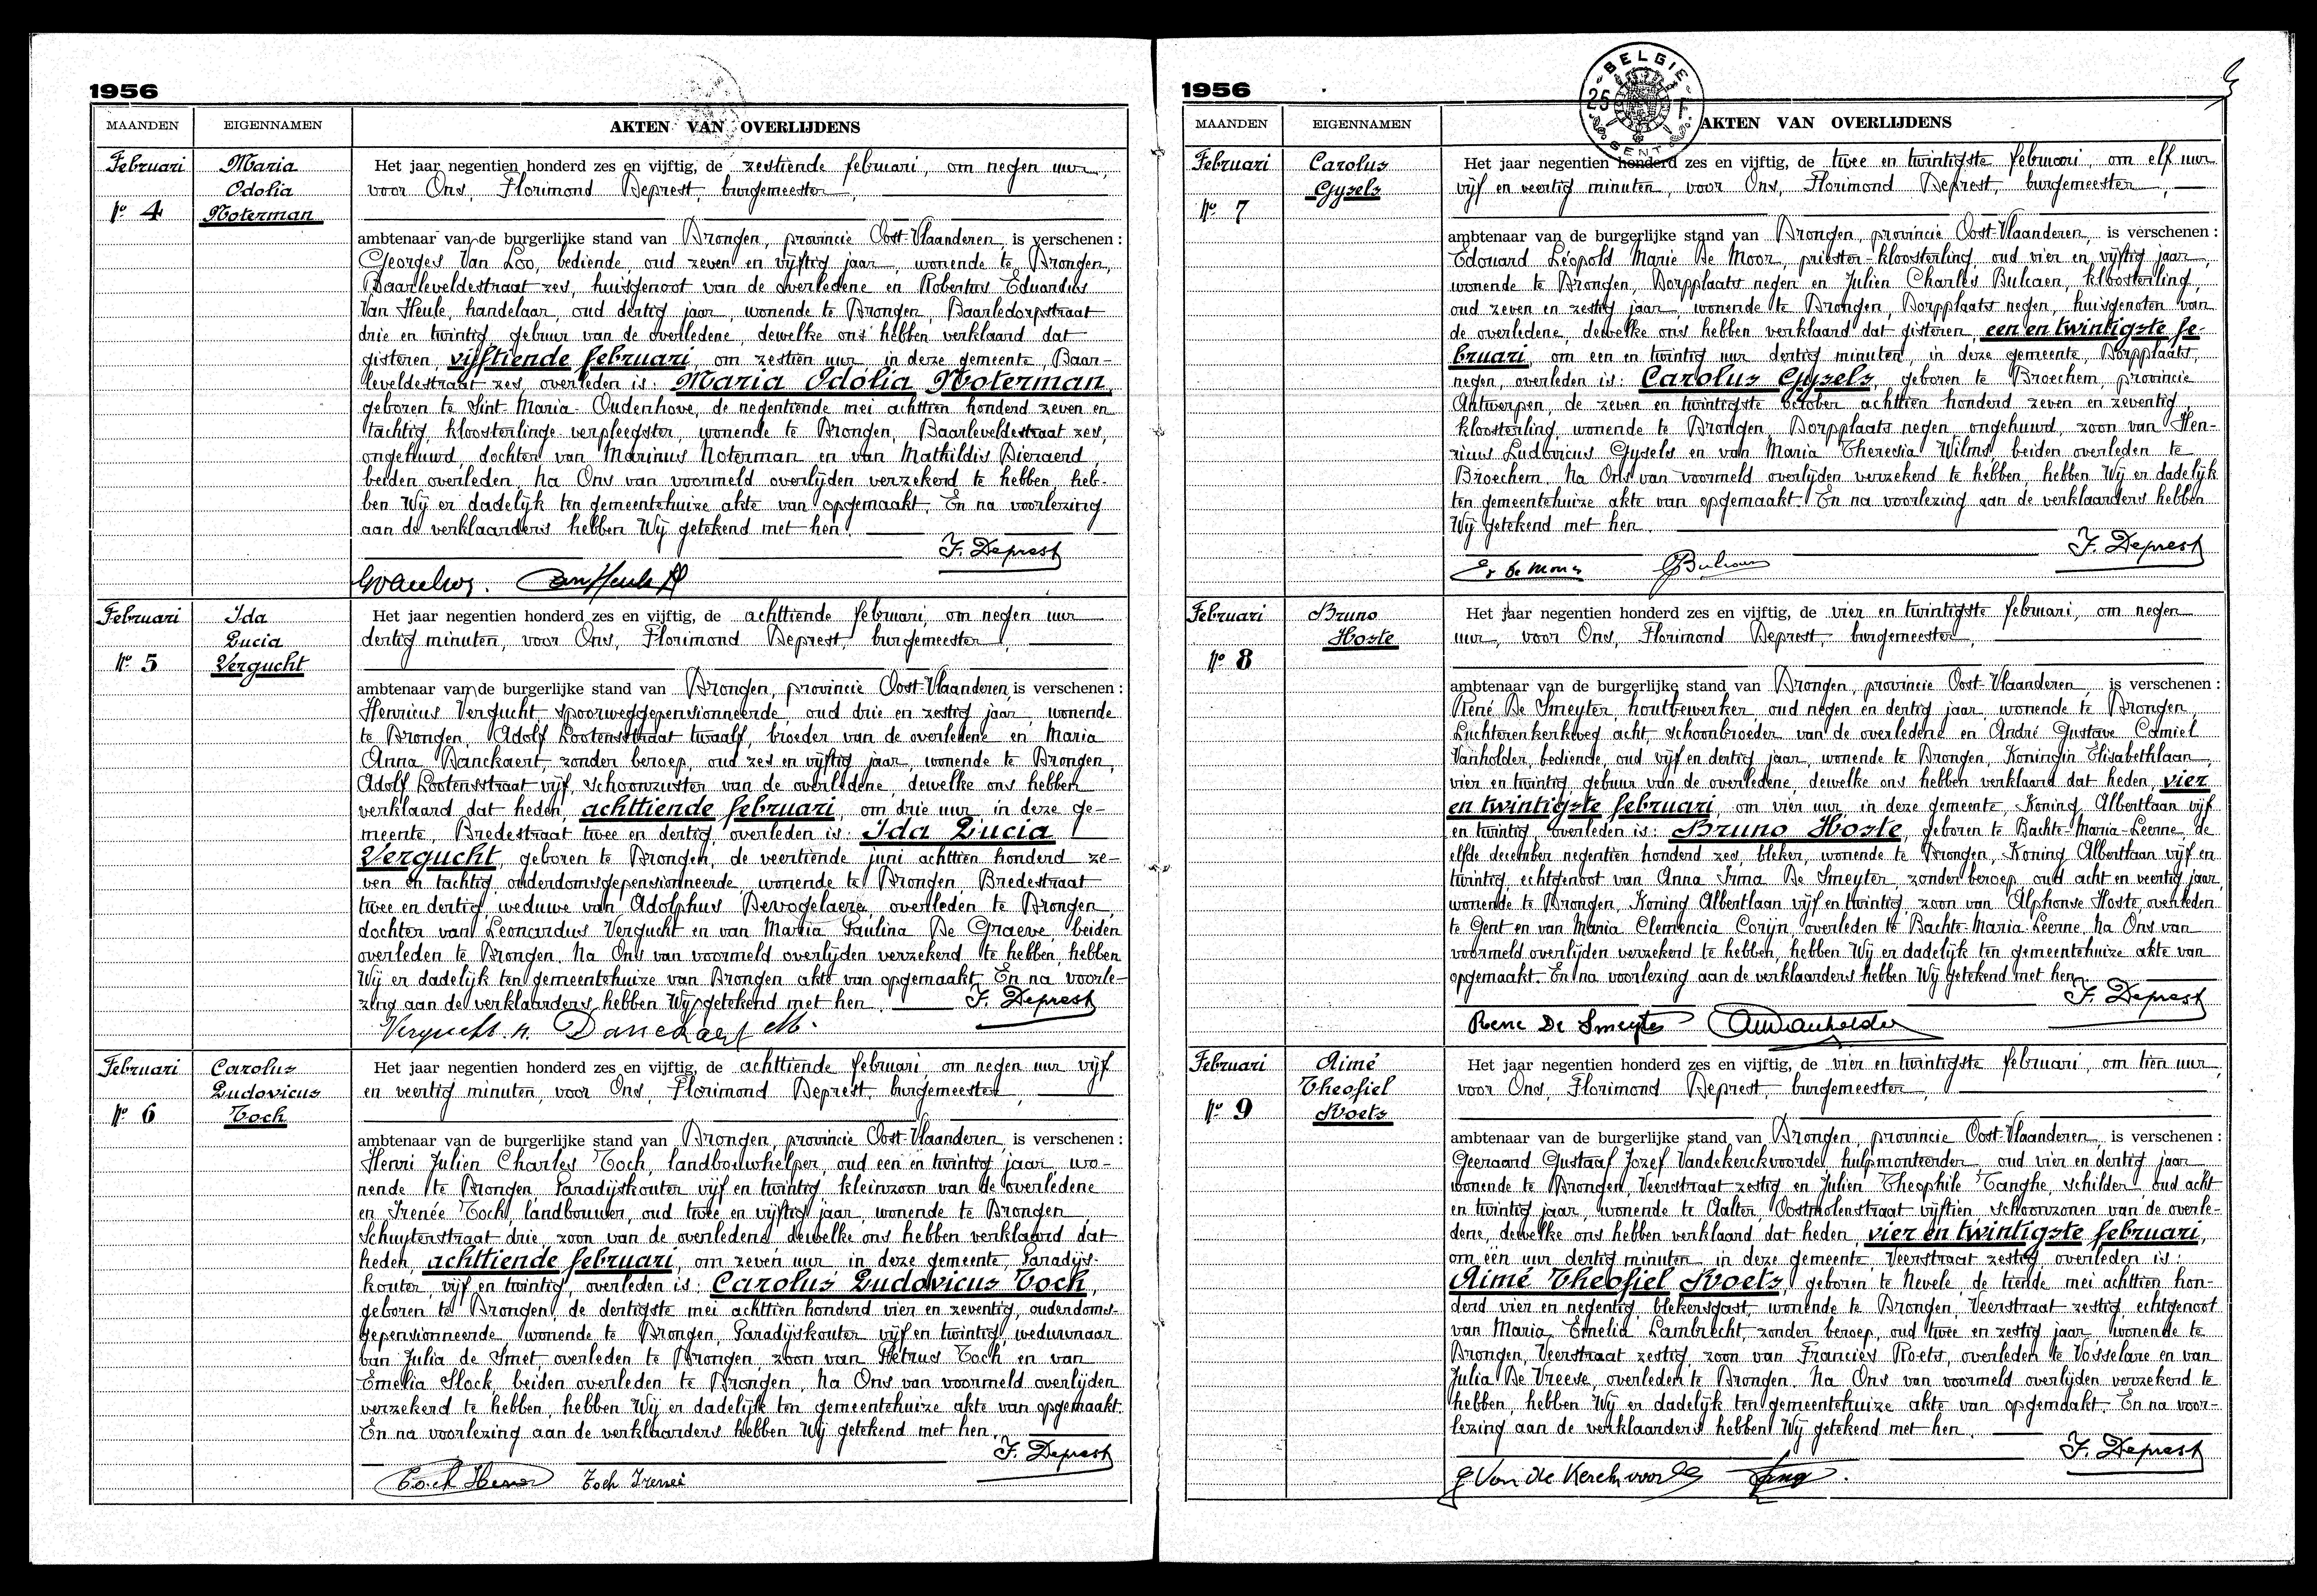 1956
MAANDEN EIGENNAMEN AKTEN VAN OVERLIJDENS
Februari
Nº 4
Maria
Odolia
Noterman
Het jaar negentien honderd zes en vijftig, de zestiende februari, om negen uur,
voor Ons, Florimond Deprest, burgemeester,
ambtenaar van de burgerlijke stand van Drongen, provincie Oost-Vlaanderen, is verschenen :
Georges Van Loo, bediende, oud zeven en vijftig jaar, wonende te Drongen,
Baarleveldestraat zes, huisgenoot van de overledene en Robertus Eduardus
Van Heule, handelaar, oud dertig jaar, wonende te Drongen, Baarledorpstraat
drie en twintig, gebuur van de overledene, dewelke ons hebben verklaard dat
gisteren, vijftiende februari, om zestien uur, in deze gemeente, Baar-
leveldestraat zes, overleden is: Maria Odolia Noterman,
geboren te Sint-Maria-Oudenhove, de negentiende mei achttien honderd zeven en
tachtig, kloosterlinge-verpleegster, wonende te Drongen, Baarleveldestraat zes,
ongehuwd, dochter van Marinus Noterman en van Mathildis Dieraerd,
beiden overleden. Na Ons van voormeld overlijden verzekerd te hebben, heb-
ben Wij er dadelijk ten gemeentehuize akte van opgemaakt. En na voorlezing
aan de verklaarders hebben Wij getekend met hen.
F. Deprest
Februari
Nº 5
Ida
Lucia
Vergucht
Het jaar negentien honderd zes en vijftig, de achttiende februari, om negen uur
dertig minuten, voor Ons, Florimond Deprest, burgemeester,
ambtenaar van de burgerlijke stand van Drongen, provincie Oost-Vlaanderen, is verschenen :
Henricus Vergucht, spoorweggepensionneerde, oud drie en zestig jaar, wonende
te Drongen, Adolf Lootensstraat twaalf, broeder van de overledene en Maria
Anna Danckaert, zonder beroep, oud zes en vijftig jaar, wonende te Drongen,
Adolf Lootensstraat vijf, schoonzuster van de overledene, dewelke ons hebben
verklaard dat heden, achttiende februari, om drie uur, in deze ge-
meente, Bredestraat twee en dertig, overleden is: Ida Lucia
Vergucht, geboren te Drongen, de veertiende juni achttien honderd ze-
ven en tachtig, ouderdomsgepensionneerde, wonende te Drongen, Bredestraat
twee en dertig, weduwe van Adolphus Devogelaere, overleden te Drongen,
dochter van Leonardus Vergucht en van Maria Paulina De Graeve, beiden
overleden te Drongen. Na Ons van voormeld overlijden verzekerd te hebben, hebben
Wij er dadelijk ten gemeentehuize van Drongen akte van opgemaakt. En na voorle-
zing aan de verklaarders, hebben Wij getekend met hen. F. Deprest
Vergucht. H. Danckaert M.
Februari
Nº 6
Carolus
Ludovicus
Toch
Het jaar negentien honderd zes en vijftig, de achttiende februari, om negen uur vijf
en veertig minuten, voor Ons, Florimond Deprest, burgemeester,
ambtenaar van de burgerlijke stand van Drongen, provincie Oost-Vlaanderen, is verschenen :
Henri Julien Charles Toch, landbouwhelper, oud een en twintig jaar, wo-
nende te Drongen, Paradijskouter vijf en twintig, kleinzoon van de overledene
en Irenée Toch, landbouwer, oud twee en vijftig jaar, wonende te Drongen
Schuytenstraat drie, zoon van de overledene dewelke ons hebben verklaard dat
heden, achttiende februari, om zeven uur, in deze gemeente, Paradijs-
kouter, vijf en twintig, overleden is: Carolus Ludovicus Toch,
geboren te Drongen, de dertigste mei achttien honderd vier en zeventig, ouderdoms-
gepensionneerde, wonende te Drongen, Paradijskouter vijf en twintig, weduwnaar
van Julia de Smet, overleden te Drongen, zoon van Petrus Toch en van
Emelia Slock, beiden overleden te Drongen. Na Ons van voormeld overlijden
verzekerd te hebben, hebben Wij er dadelijk ten gemeentehuize akte van opgemaakt.
En na voorlezing aan de verklaarders hebben Wij getekend met hen.
F. Deprest
Toch Henri Toch Irenei
1956
BELGIE
25
GENT
MAANDEN EIGENNAMEN AKTEN VAN OVERLIJDENS
Februari
Nº 7
Carolus
Gysels
Het jaar negentien honderd zes en vijftig, de twee en twintigste februari, om elf uur
vijf en veertig minuten, voor Ons, Florimond Deprest, burgemeester,
ambtenaar van de burgerlijke stand van Drongen, provincie Oost-Vlaanderen, is verschenen :
Edouard Léopold Marie De Moor, priester-kloosterling oud vier en vijftig jaar,
wonende te Drongen, Dorpplaats negen en Julien Charles Bulcaen, kloosterling,
oud zeven en zestig jaar, wonende te Drongen, Dorpplaats negen, huisgenoten van
de overledene, dewelke ons hebben verklaard dat gisteren, een en twintigste fe-
bruari, om een en twintig uur dertig minuten, in deze gemeente, Dorpplaats,
negen, overleden is: Carolus Gysels, geboren te Broechem, provincie
Antwerpen, de zeven en twintigste october achttien honderd zeven en zeventig,
kloosterling, wonende te Drongen, Dorpplaats negen, ongehuwd, zoon van Hen-
ricus Ludovicus Gysels en van Maria Theresia Wilms, beiden overleden te
Broechem. Na Ons van voormeld overlijden verzekerd te hebben, hebben Wij er dadelijk
ten gemeentehuize akte van opgemaakt. En na voorlezing aan de verklaarders hebben
Wij getekend met hen.
F. Deprest
Februari
Nº 8
Bruno
Hoste
Het jaar negentien honderd zes en vijftig, de vier en twintigste februari, om negen
uur, voor Ons, Florimond Deprest, burgemeester,
ambtenaar van de burgerlijke stand van Drongen, provincie Oost-Vlaanderen, is verschenen :
René De Smeyter, houtbewerker, oud negen en dertig jaar, wonende te Drongen,
Luchterenkerkweg acht, schoonbroeder van de overledene en André Gustave Camiel
Vanholder, bediende, oud vijf en dertig jaar, wonende te Drongen, Koningin Elisabethlaan,
vier en twintig, gebuur van de overledene, dewelke ons hebben verklaard dat heden, vier
en twintigste februari, om vier uur, in deze gemeente, Koning Albertlaan vijf
en twintig, overleden is: Bruno Hoste, geboren te Bachte-Maria-Leerne de
elfde december negentien honderd zes, bleker, wonende te Drongen, Koning Albertlaan vijf en
twintig, echtgenoot van Anna Irma De Smeyter, zonder beroep, oud acht en veertig jaar,
wonende te Drongen, Koning Albertlaan vijf en twintig, zoon van Alphonse Hoste, overleden
te Gent en van Maria Clemencia Corijn, overleden te Bachte-Maria-Leerne. Na Ons van
voormeld overlijden verzekerd te hebben, hebben Wij er dadelijk ten gemeentehuize akte van
opgemaakt. En na voorlezing aan de verklaarders hebben Wij getekend met hen.
F. Deprest
Rene De Smeyter AVanholder
Februari
Nº 9
Aimé
Theofiel
Roets
Het jaar negentien honderd zes en vijftig, de vier en twintigste februari, om tien uur,
voor Ons, Florimond Deprest, burgemeester,
ambtenaar van de burgerlijke stand van Drongen, provincie Oost-Vlaanderen, is verschenen :
Geeraard Gustaaf Jozef Vandekerckvoorde, hulpmonteerder, oud vier en dertig jaar,
wonende te Drongen, Veerstraat zestig en Julien Theophile Tanghe, schilder, oud acht
en twintig jaar, wonende te Aalter, Oostmolenstraat vijftien, schoonzonen van de overle-
dene, dewelke ons hebben verklaard dat heden, vier en twintigste februari,
om één uur dertig minuten, in deze gemeente, Veerstraat zestig, overleden is:
Aimé Theofiel Roets, geboren te Nevele, de tiende mei achttien hon-
derd vier en negentig, blekersgast, wonende te Drongen, Veerstraat zestig, echtgenoot
van Maria Emelia Lambrecht, zonder beroep, oud twee en zestig jaar, wonende te
Drongen, Veerstraat zestig, zoon van Franciès Roets, overleden te Vosselare en van
Julia De Vreese, overleden te Drongen. Na Ons van voormeld overlijden verzekerd te
hebben, hebben Wij er dadelijk ten gemeentehuize akte van opgemaakt. En na voor-
lezing aan de verklaarders hebben Wij getekend met hen.
F. Deprest
G Van de Kerckvoorde